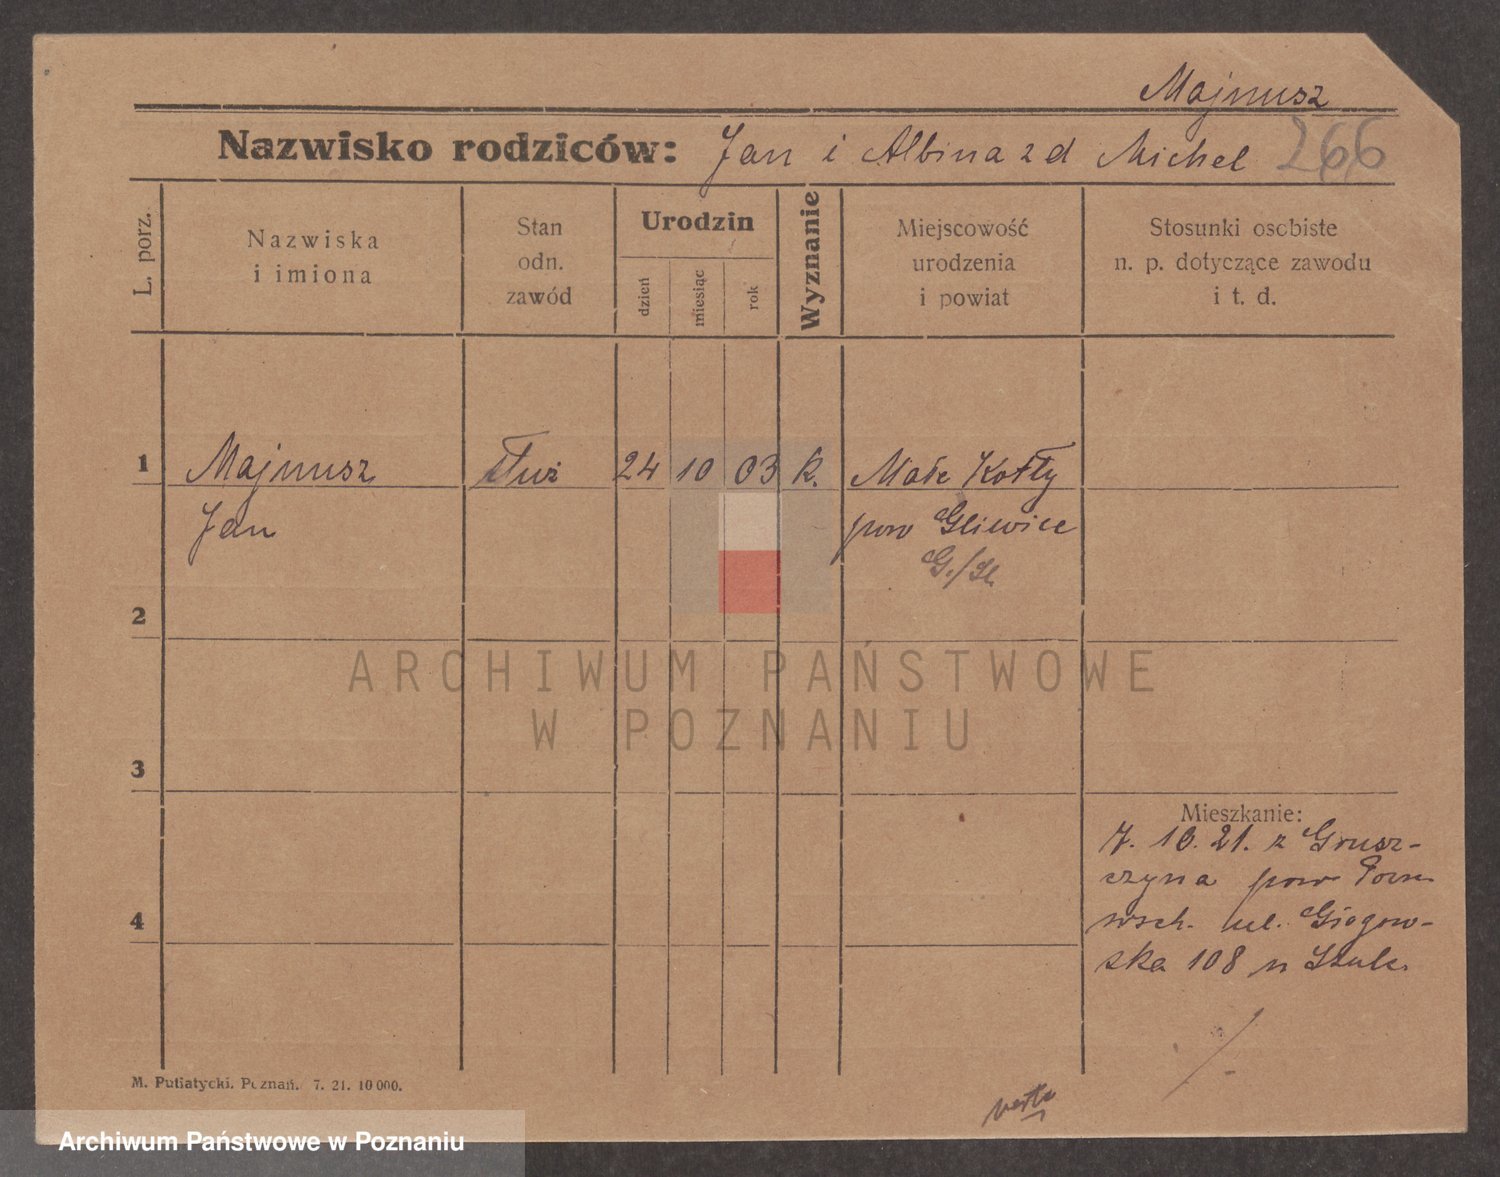 Majnusz
Nazwisko rodziców: Jan i Albina z d Michel 266
L. porz.
Nazwiska
i imiona
Stan
odn.
zawód
Urodzin
dzień
miesiąc
rok
Wyznanie
Miejscowość
urodzenia
i powiat
Stosunki osobiste
n. p. dotyczące zawodu
i t. d.
1 Majnusz 24 10 03 k. Małe Kotły
Jan pow Gliwice
G./Sl.
2
ARCHIWUM PAŃSTWOWE
W POZNANIU
3
Mieszkanie:
7. 10. 21. z Grusz-
czyna pow Pozn
wsch. ul. Głogow-
4
ska 108 u
M. Putiatycki. Poznań. 7. 21. 10 000.
verte
Archiwum Państwowe w Poznaniu